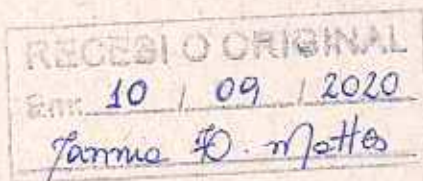 RECEBI O ORIGINAL
Em: 10 / 09 / 2020
D. Mattos